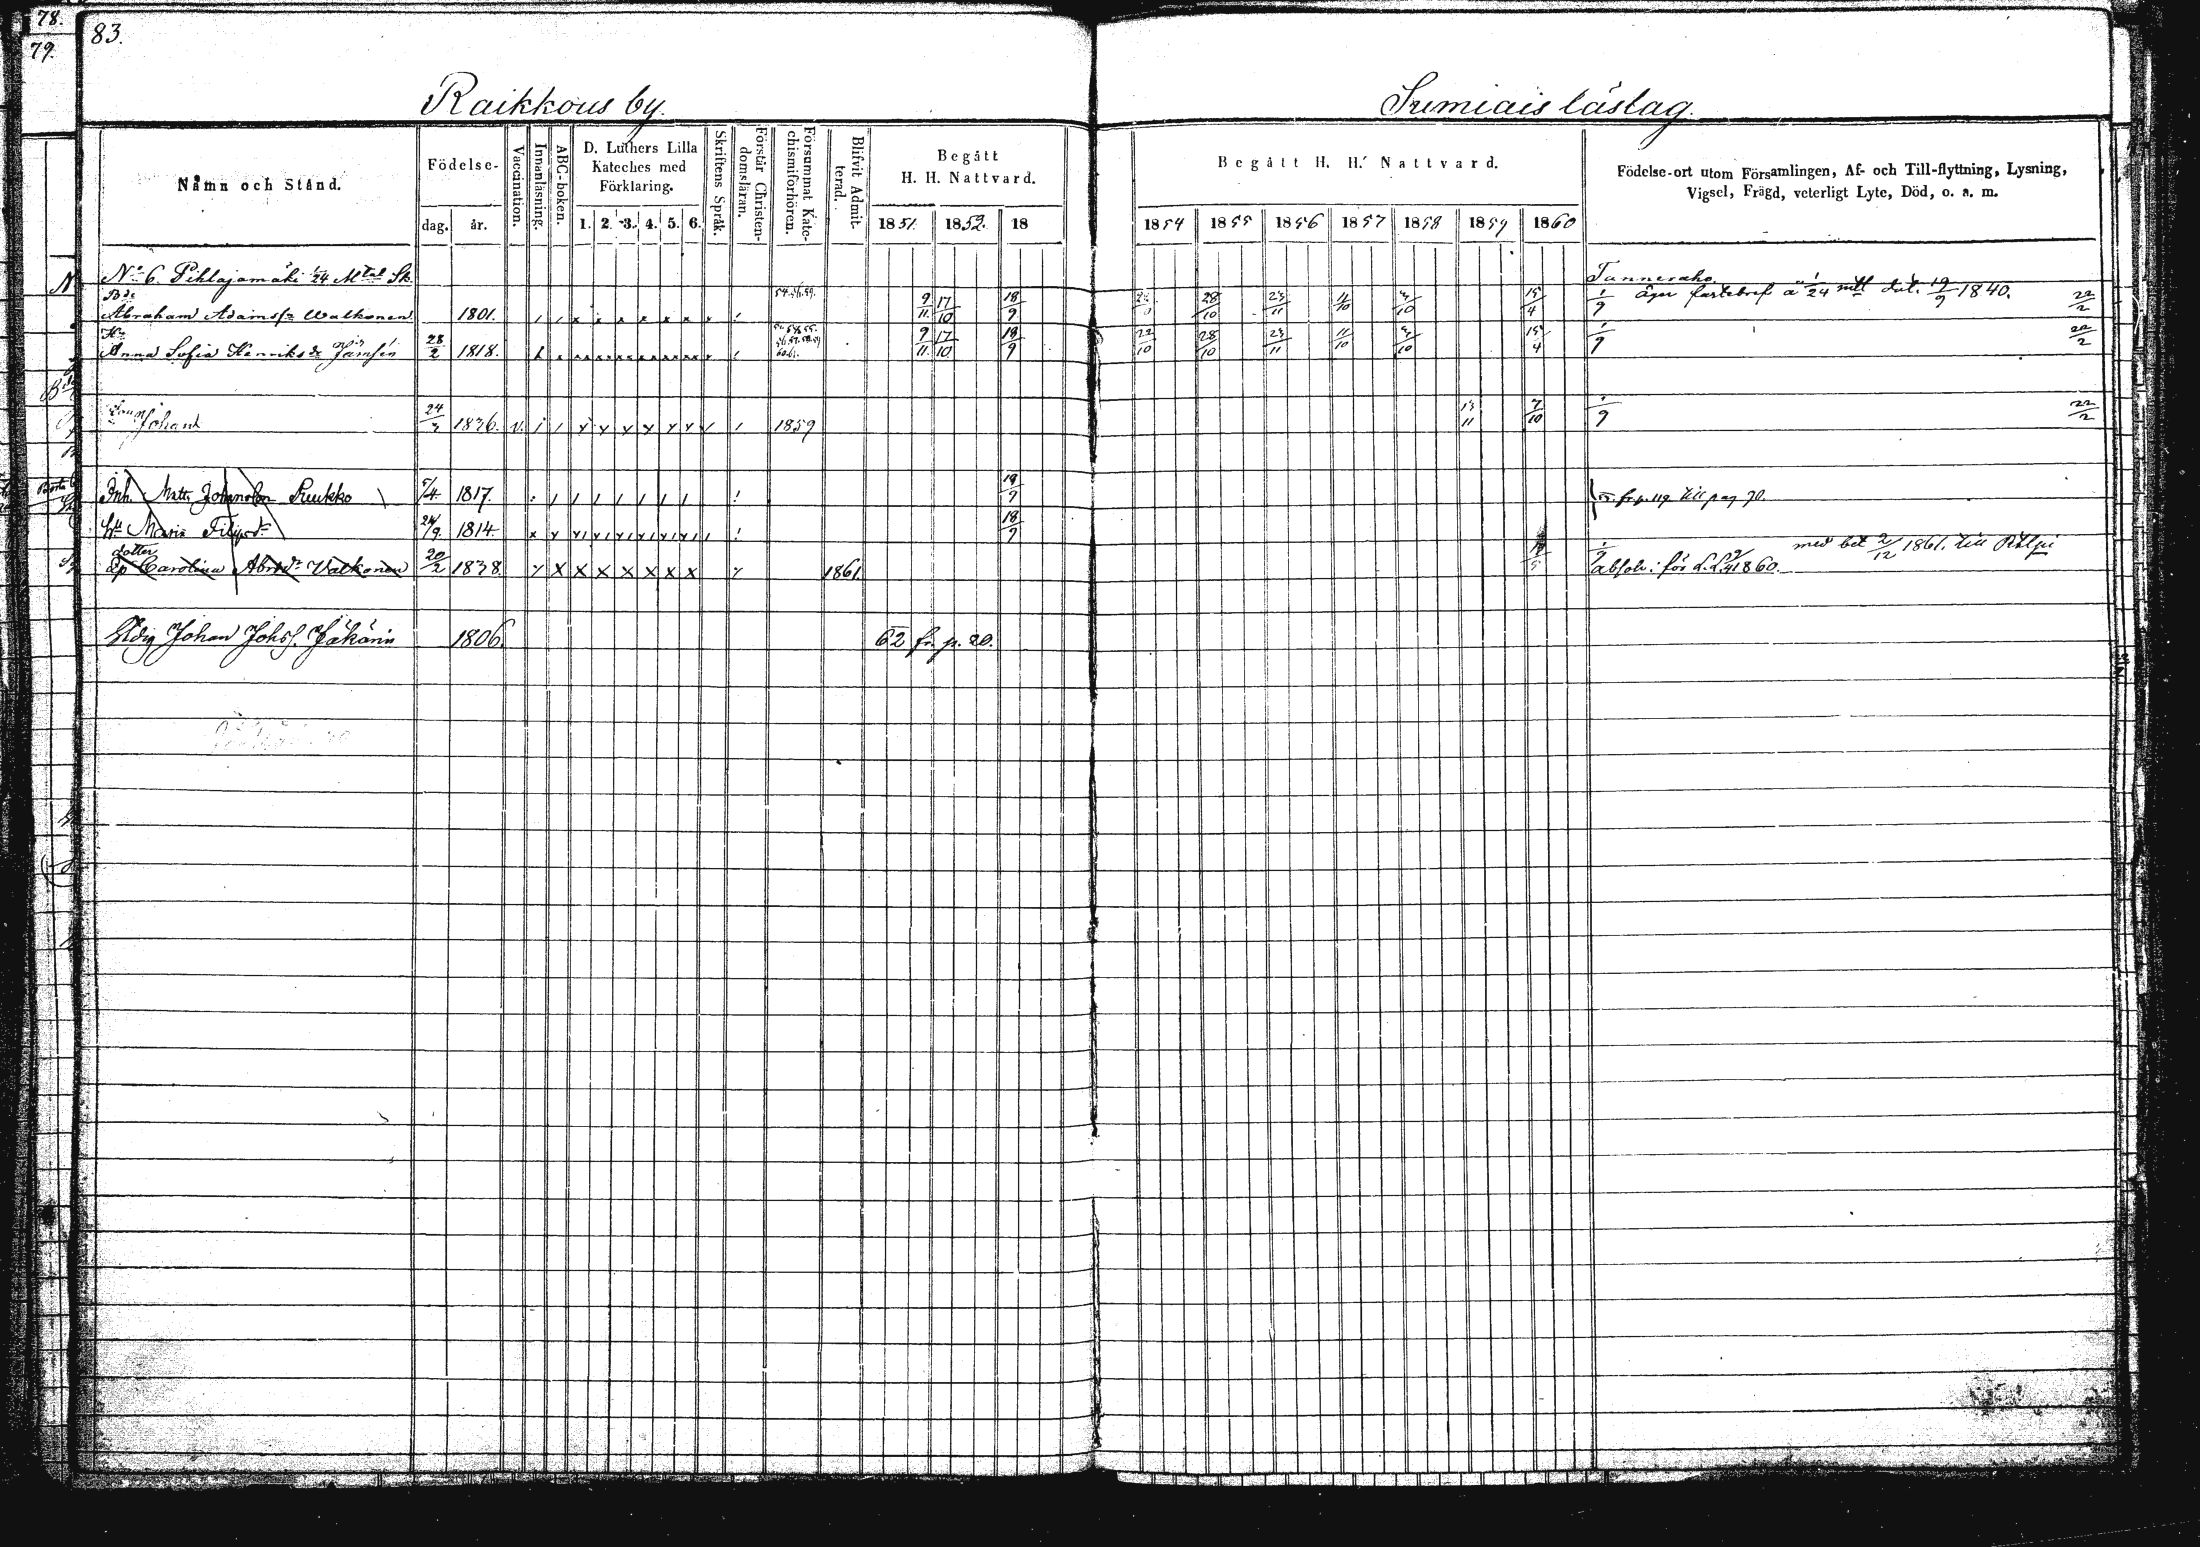 78.
79.
83.
Raikkous by.
Sumiais läslag.
Namn och Stånd.
Födelse-
dag. år.
Vaccination.
Innanläsning.
ABC-boken.
D. Luthers Lilla
Kateches med
Förklaring.
1. 2. 3. 4. 5. 6.
Skriftens Språk.
Förstår Christen-
domsläran.
Försummat Kate-
chismiförhören.
Blifvit Admit-
terad.
Begått
H. H. Nattvard.
1851. 1852. 18
Begått H. H. Nattvard.
1854 1855 1856 1857 1858 1859 1860
Födelse-ort utom Församlingen, Af- och Till-flyttning, Lysning,
Vigsel, Frägd, veterligt Lyte, Död, o. a. m.
No 6. Pihlajamäki 1/24 Mtal Sk.
Bde
Abraham Adamsf. Walkonen 1801. 54.56.59. 9/11 17/10 18/9 28/10 23/11 11/10 15/4 1/9 äger fastebref å 1/24 mtl dat. 19/9 1840. 22/2
Hu
Anna Sofia Henriksdr Jämsén 28/2 1818. 9/11 17/10 18/9 22/10 28/10 23/11 11/10 15/4 1/9 22/2
Son Johan 1836. v. 1859 13/11 7/10 1/9 22/2
Inh. Matts Johansson Ruukko 5/4 1817. 18/9 fr. p. 119 till pag 70.
Hu Maria Filipsdr 24/9 1814. 18/9
dotter
Carolina Abrsdr Valkonen 20/2 1838. 1861. absolv: för L. 1860. med bet 2/12 1861. till
Ldig Johan Johsf. Jäkärin 1806. 62 fr. p. 20.